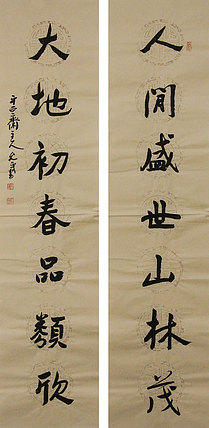 人間盛世山林茂
大地初春品類欣